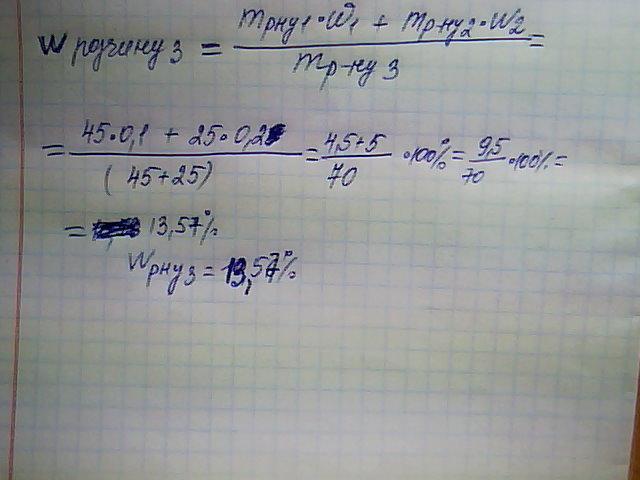 W розчину 3 = (m р-ну1 · W1 + m р-ну2 · W2) / (m р-ну 3) =
= (45·0,1 + 25·0,2) / (45+25) = (4,5+5) / 70 · 100% = 9,5 / 70 · 100% =
= 13,57%
W р-ну 3 = 13,57%